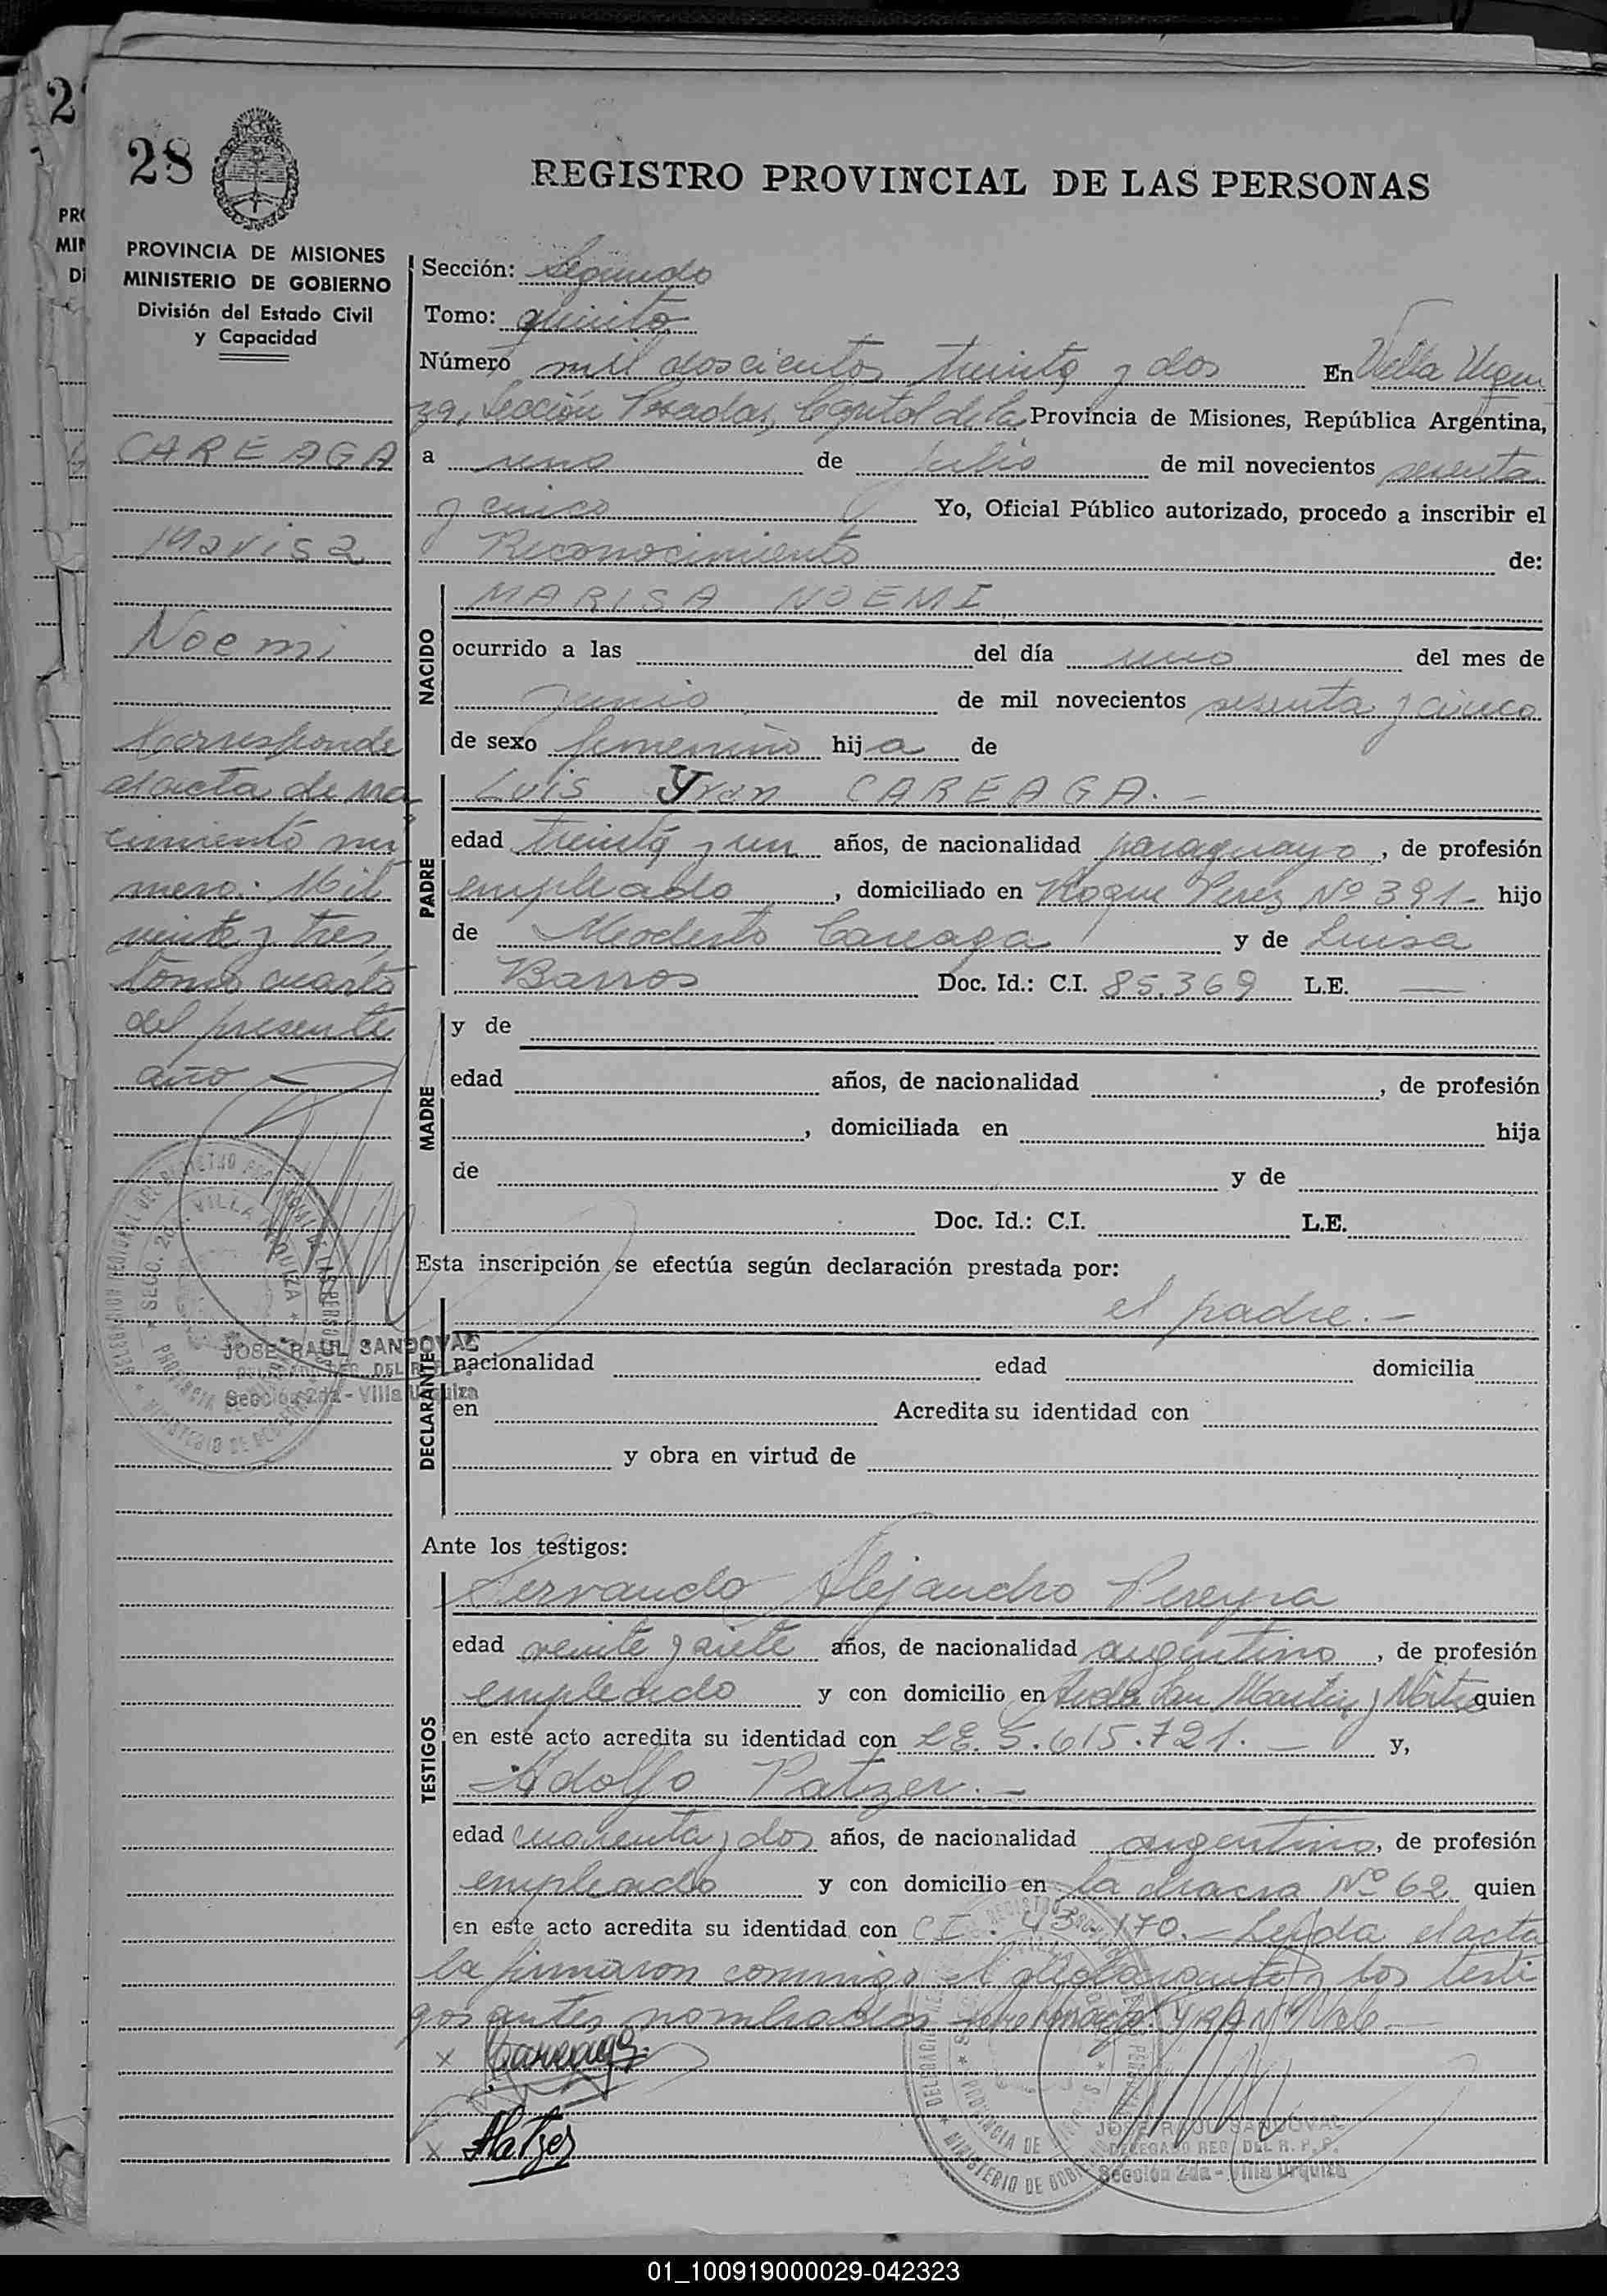 28
REGISTRO PROVINCIAL DE LAS PERSONAS
PROVINCIA DE MISIONES
MINISTERIO DE GOBIERNO
División del Estado Civil
y Capacidad
CAREAGA
Marisa
Noemi
Corresponde
al acta de na
cimiento nú
mero: Mil
veinte y tres,
tomo cuarto
del presente
año
JOSE RAUL SANDOVAL
Sección 2da - Villa Urquiza
Sección: Segundo
Tomo: quinto
Número mil doscientos treinta y dos En Villa Urqui
za, Sección Posadas, Capital de la Provincia de Misiones, República Argentina,
a uno de Julio de mil novecientos sesenta
y cinco Yo, Oficial Público autorizado, procedo a inscribir el
Reconocimiento de:
NACIDO
MARISA NOEMI
ocurrido a las del día uno del mes de
junio de mil novecientos sesenta y cinco
de sexo femenino hija de
PADRE
Luis Yvan CAREAGA.-
edad treinta y un años, de nacionalidad paraguayo, de profesión
empleado, domiciliado en Roque Perez Nº 391- hijo
de Modesto Careaga y de Luisa
Barros Doc. Id.: C.I. 85.369 L.E. —
MADRE
y de
edad años, de nacionalidad , de profesión
, domiciliada en hija
de y de
Doc. Id.: C.I. L.E.
Esta inscripción se efectúa según declaración prestada por:
DECLARANTE
el padre.-
nacionalidad edad domicilia
en Acredita su identidad con
y obra en virtud de
Ante los testigos:
TESTIGOS
Servando Alejandro Pereyra
edad veinte y siete años, de nacionalidad argentino, de profesión
empleado y con domicilio en Avda San Martin y quien
en este acto acredita su identidad con LE. 5.615.721.- y,
Adolfo Patzer.-
edad cuarenta y dos años, de nacionalidad argentino, de profesión
empleado y con domicilio en la chacra Nº 62 quien
en este acto acredita su identidad con C.I. 43.170.- Leída el acta
la firmaron conmigo el declarante y los testi
gos antes nombrados. YVAN Vale-
x Careaga
x APatzer
JOSE RAUL SANDOVAL
DELEGADO REG. DEL R. P. P.
Sección 2da - Villa Urquiza
01_100919000029-042323